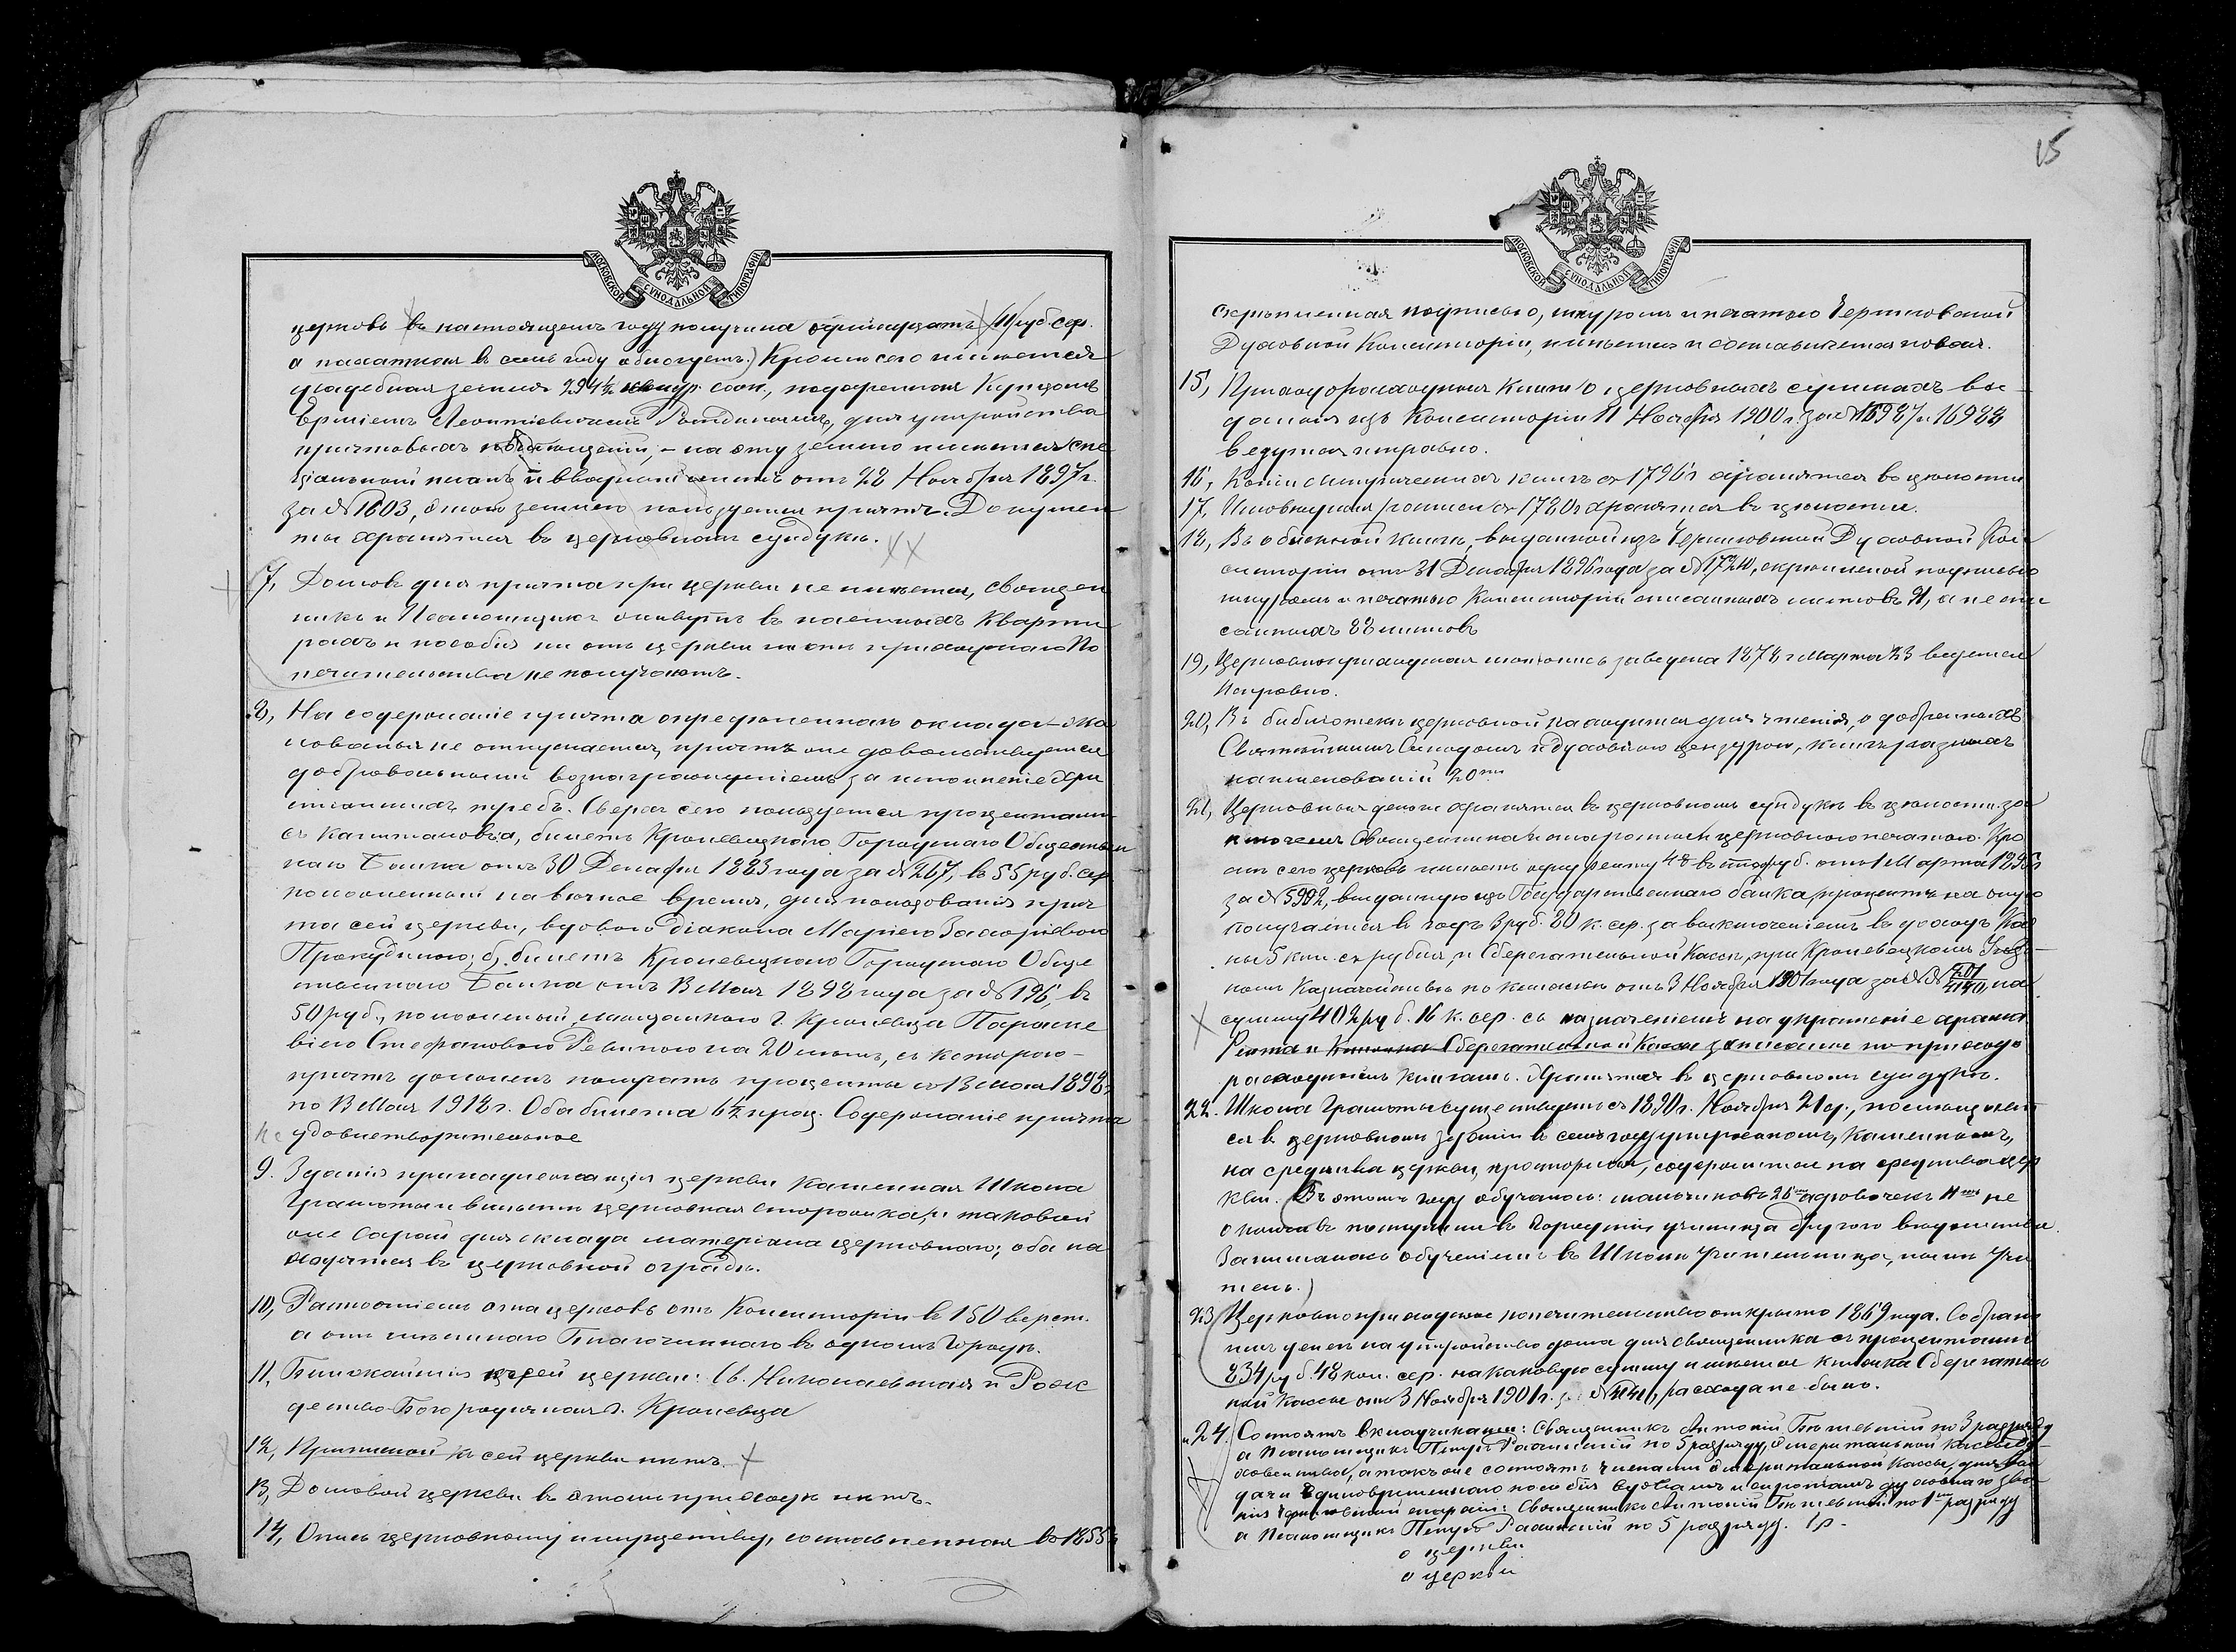 15
МОСКОВСКОЙ СѴНОДАЛЬНОЙ ТИПОГРАФІИ
церковь въ настоящемъ году получила одинадцать 11 руб сер.
Кромѣ сего имѣется
усадебная земля 294½ саж., подаренная Купцомъ
Леонтіевичемъ для устройства
причтовыхъ на эту землю имѣется спе
ціальный планъ и вводный листъ отъ 28 Ноября 1897 г.
за № 1603, этою землею пользуется причтъ. Докумен
ты хранятся въ церковномъ сундукѣ.
7, Домовъ для причта при церкви не имѣется, Священ
никъ и Псаломщикъ живутъ въ наемныхъ кварти
рахъ и пособія ни отъ церкви ни отъ приходскаго По
печительства не получаютъ.
8, На содержаніе причта опредѣленнаго оклада жа
лованья не отпускается, причтъ же довольствуется
добровольнымъ вознагражденіемъ за исполненіе хри
стіанскихъ требъ. Сверхъ сего пользуется процентами
съ капиталовъ: а, билетъ Кролевецкаго Городскаго Обществен
наго Банка отъ 30 Декабря 1883 года за № 267, въ 55 руб. сер
положенный на вѣчное время, для пользованія прич
та сей церкви, вдовою діакона Маріею Захаріевою
б, билетъ Кролевецкаго Городскаго Обще
ственнаго Банка отъ 13 Мая 1898 года за № 196, въ
50 руб., положеный мѣщанкою г. Кролевца Параске
віею Стефановою на 20 лѣтъ, съ котораго
причтъ долженъ получать проценты съ 13 Мая 1898 г
по 13 Мая 1918 г. Оба билета 6½ проц. Содержаніе причта
не удовлетворительное
9. Зданія принадлежащія церкви каменная Школа
Грамоты и вмѣстѣ церковная сторожка, и таковой
же сарай для склада матеріала церковнаго; оба на
ходятся въ церковной оградѣ.
10, Разстояніемъ эта церковь отъ Консисторіи въ 150 верст.
а отъ мѣстнаго Благочиннаго въ одномъ Городѣ.
11, Ближайшія къ сей церкви: Св. Николаевская и Рож
дество-Богородичная г. Кролевца
12, Приписной къ сей церкви нѣтъ.
13, Домовой церкви въ этомъ приходѣ нѣтъ.
14, Опись церковному имуществу, составленная въ 1855 г
МОСКОВСКОЙ СѴНОДАЛЬНОЙ ТИПОГРАФІИ
скрѣпленная подписью, шнуромъ и печатью Черниговской
Духовной Консисторіи, имѣется и составляется новая.
15, Приходорасходныя книги о церковныхъ суммахъ вы
данныя изъ Консисторіи 11 Ноября 1900 г. за № 16987 и 16988
ведутся исправно.
16, Копіи метрическихъ книгъ съ 1796 г хранятся въ цѣлости
17, Исповѣдныя росписи съ 1780 г хранятся въ цѣлости.
18, Въ обыскной книгѣ, выданной изъ Черниговской Духовной Кон
систоріи отъ 31 Декабря 1896 года за № скрѣпленой подписью
шнуромъ и печатью Консисторіи описанныхъ листовъ а не опи
санныхъ 88 листовъ
19, Церковноприходская лѣтопись заведена 1878 г Марта 23 ведется
исправно.
20, Въ библіотекѣ церковной находится для чтенія, одобренныхъ
Святѣйшимъ Синодомъ и духовною цензурою, книгъ разныхъ
наименованій 20ть
21, Церковныя деньги хранятся въ церковномъ сундукѣ въ цѣлости за
ключемъ Священника и старостаи церковною печатью. Кро
мѣ сего церковь имѣетъ одну ренту въ сто руб. отъ 1 Марта
за № выданную изъ Государственнаго банка, проценты на оную
получаются въ годъ 3 руб. 80 к. сер. за выключеніемъ въ доходъ Каз
ны 5 коп. съ рубля, и Сберегательной Кассы, при Кролевецкомъ Уѣзд
номъ Казначействѣ по книжкѣ отъ 3 Ноября 1901 года за №№ на
сумму 402 руб. 16 к. сер. съ назначеніемъ на украшеніе храма
Рента и книжка Сберегательной Кассы записаны по приходо
расходнымъ книгамъ. Хранятся въ церковномъ сундукѣ.
22. Школа Грамоты существуетъ съ 1890 г. Ноября 21 д., помѣщает
ся въ церковномъ зданіи въ семъ году каменномъ,
на средства церкви, содержится на средства цер
кви. Въ этомъ году обучалось: мальчиковъ 26 а дѣвочекъ не
окончивъ поступили въ Городскія училища другого вѣдомства.
Занималась обученіемъ въ Школѣ Учительница,
тель.)
23, Церковноприходское попечительство открыто 1869 года. Собран
ныхъ денегъ на устройство дома для священника съ процентами
834 руб. 48 коп. сер. на каковую сумму имѣется книжка Сберегатель
ной Кассы отъ 3 Ноября 1901 г. за № расхода не было.
24. Состоятъ вкладчиками: Священникъ Антоній по 3 разряду
а Псаломщикъ Петръ по 5 разряду, эмеритальной кассы ду
ховенства, а также состоятъ членами эмеритальной кассы, для вы
дачи единовременнаго пособія вдовамъ и сиротамъ духовнаго зва
нія епархіи: Священникъ Антоній по 1 разряду
а Псаломщикъ Петръ по 5 разряду.
о церкви
о церкви